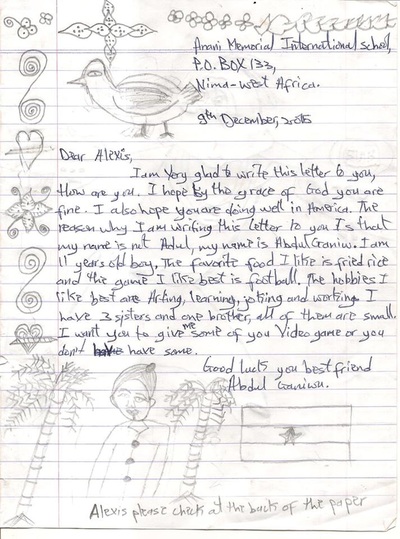 Anani Memorial International school,
P.O. BOX 133,
Nima-west Africa.
9th December, 2005
Dear Alexis,
I am very glad to write this letter to you,
How are you. I hope by the grace of God you are
fine. I also hope you are doing well in America. The
reason why I am writing this letter to you Is that
my name is not Abdul, my name is Abdul Ganiwu. I am
11 years old boy. The favorite food I like is fried rice
and the game I like best is football. The hobbies I
like best are Arting, learning, joking and working. I
have 3 sisters and one brother, all of them are small.
I want you to give me some of you Video game or you
don't have some.
Good luck you best friend
Abdul Ganiwu.
Alexis please check at the back of the paper